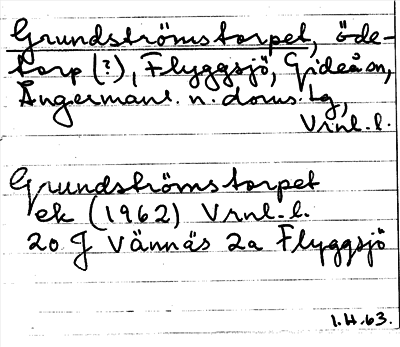 Grundströmstorpet, öde-
torp (?), Flyggsjö, Gideå sn,
Ångermanl. n. doms. lg,
Vrnl. l.
Grundströmstorpet
ek (1962) Vrnl. l.
20 J Vännäs 2a Flyggsjö
I. H. 63.